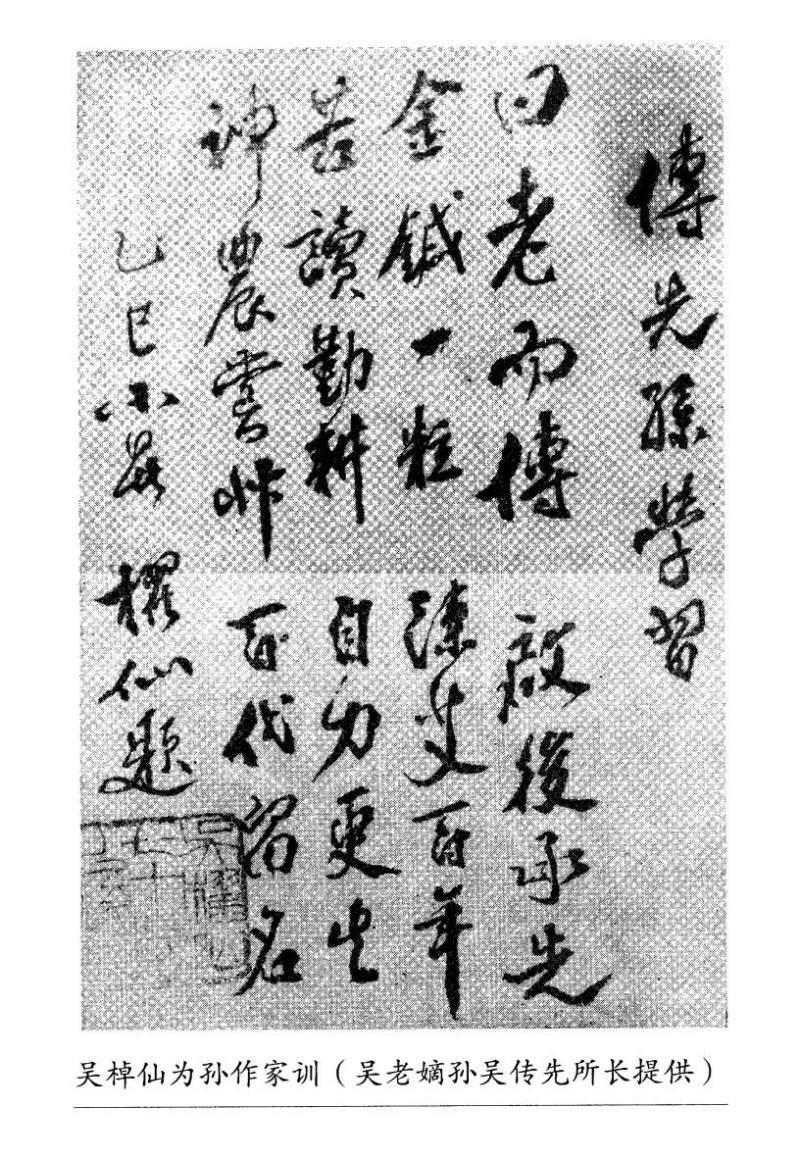 傳先孫學習
曰老而傳 啟後承先
金鍼一粒 陳艾百年
苦讀勤耕 自力更生
神農嘗艸 百代留名
乙巳小 櫂仙題
吴棹仙为孙作家训（吴老嫡孙吴传先所长提供）